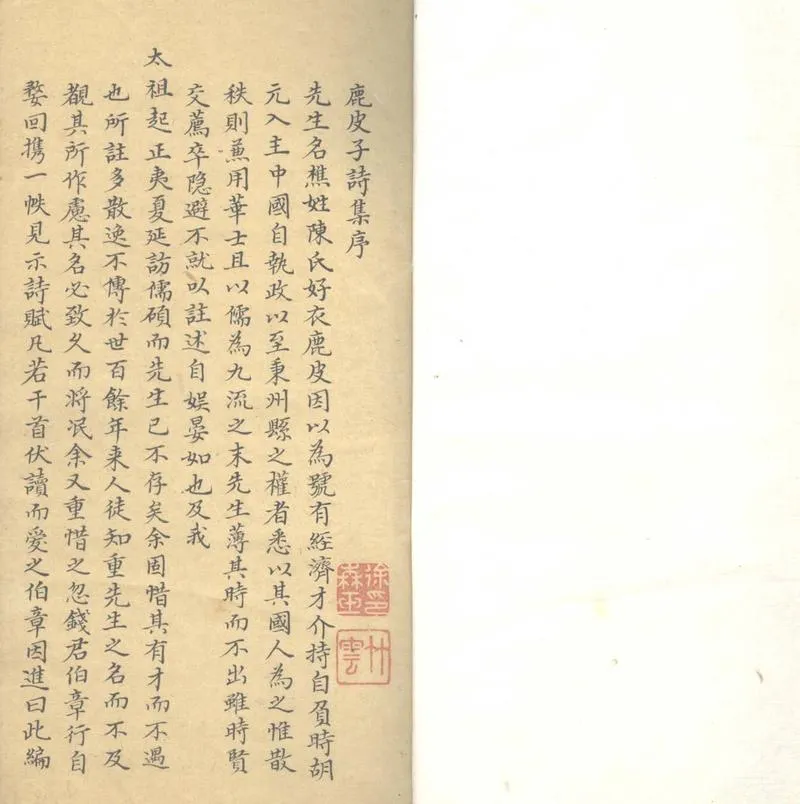 鹿皮子詩集序
先生名樵姓陳氏好衣鹿皮因以為號有經濟才介持自負時胡
元入主中國自執政以至秉州縣之權者悉以其國人為之惟散
秩則兼用華士且以儒為九流之末先生薄其時而不出雖時賢
交薦卒隱避不就以註述自娛晏如也及我
太祖起正夷夏延訪儒碩而先生已不存矣余固惜其有才而不遇
也所註多散逸不傳於世百餘年来人徒知重先生之名而不及
覩其所作慮其名必致久而將泯余又重惜之忽錢君伯章行自
婺回携一帙見示詩賦凡若干首伏讀而愛之伯章因進曰此編
竹雲